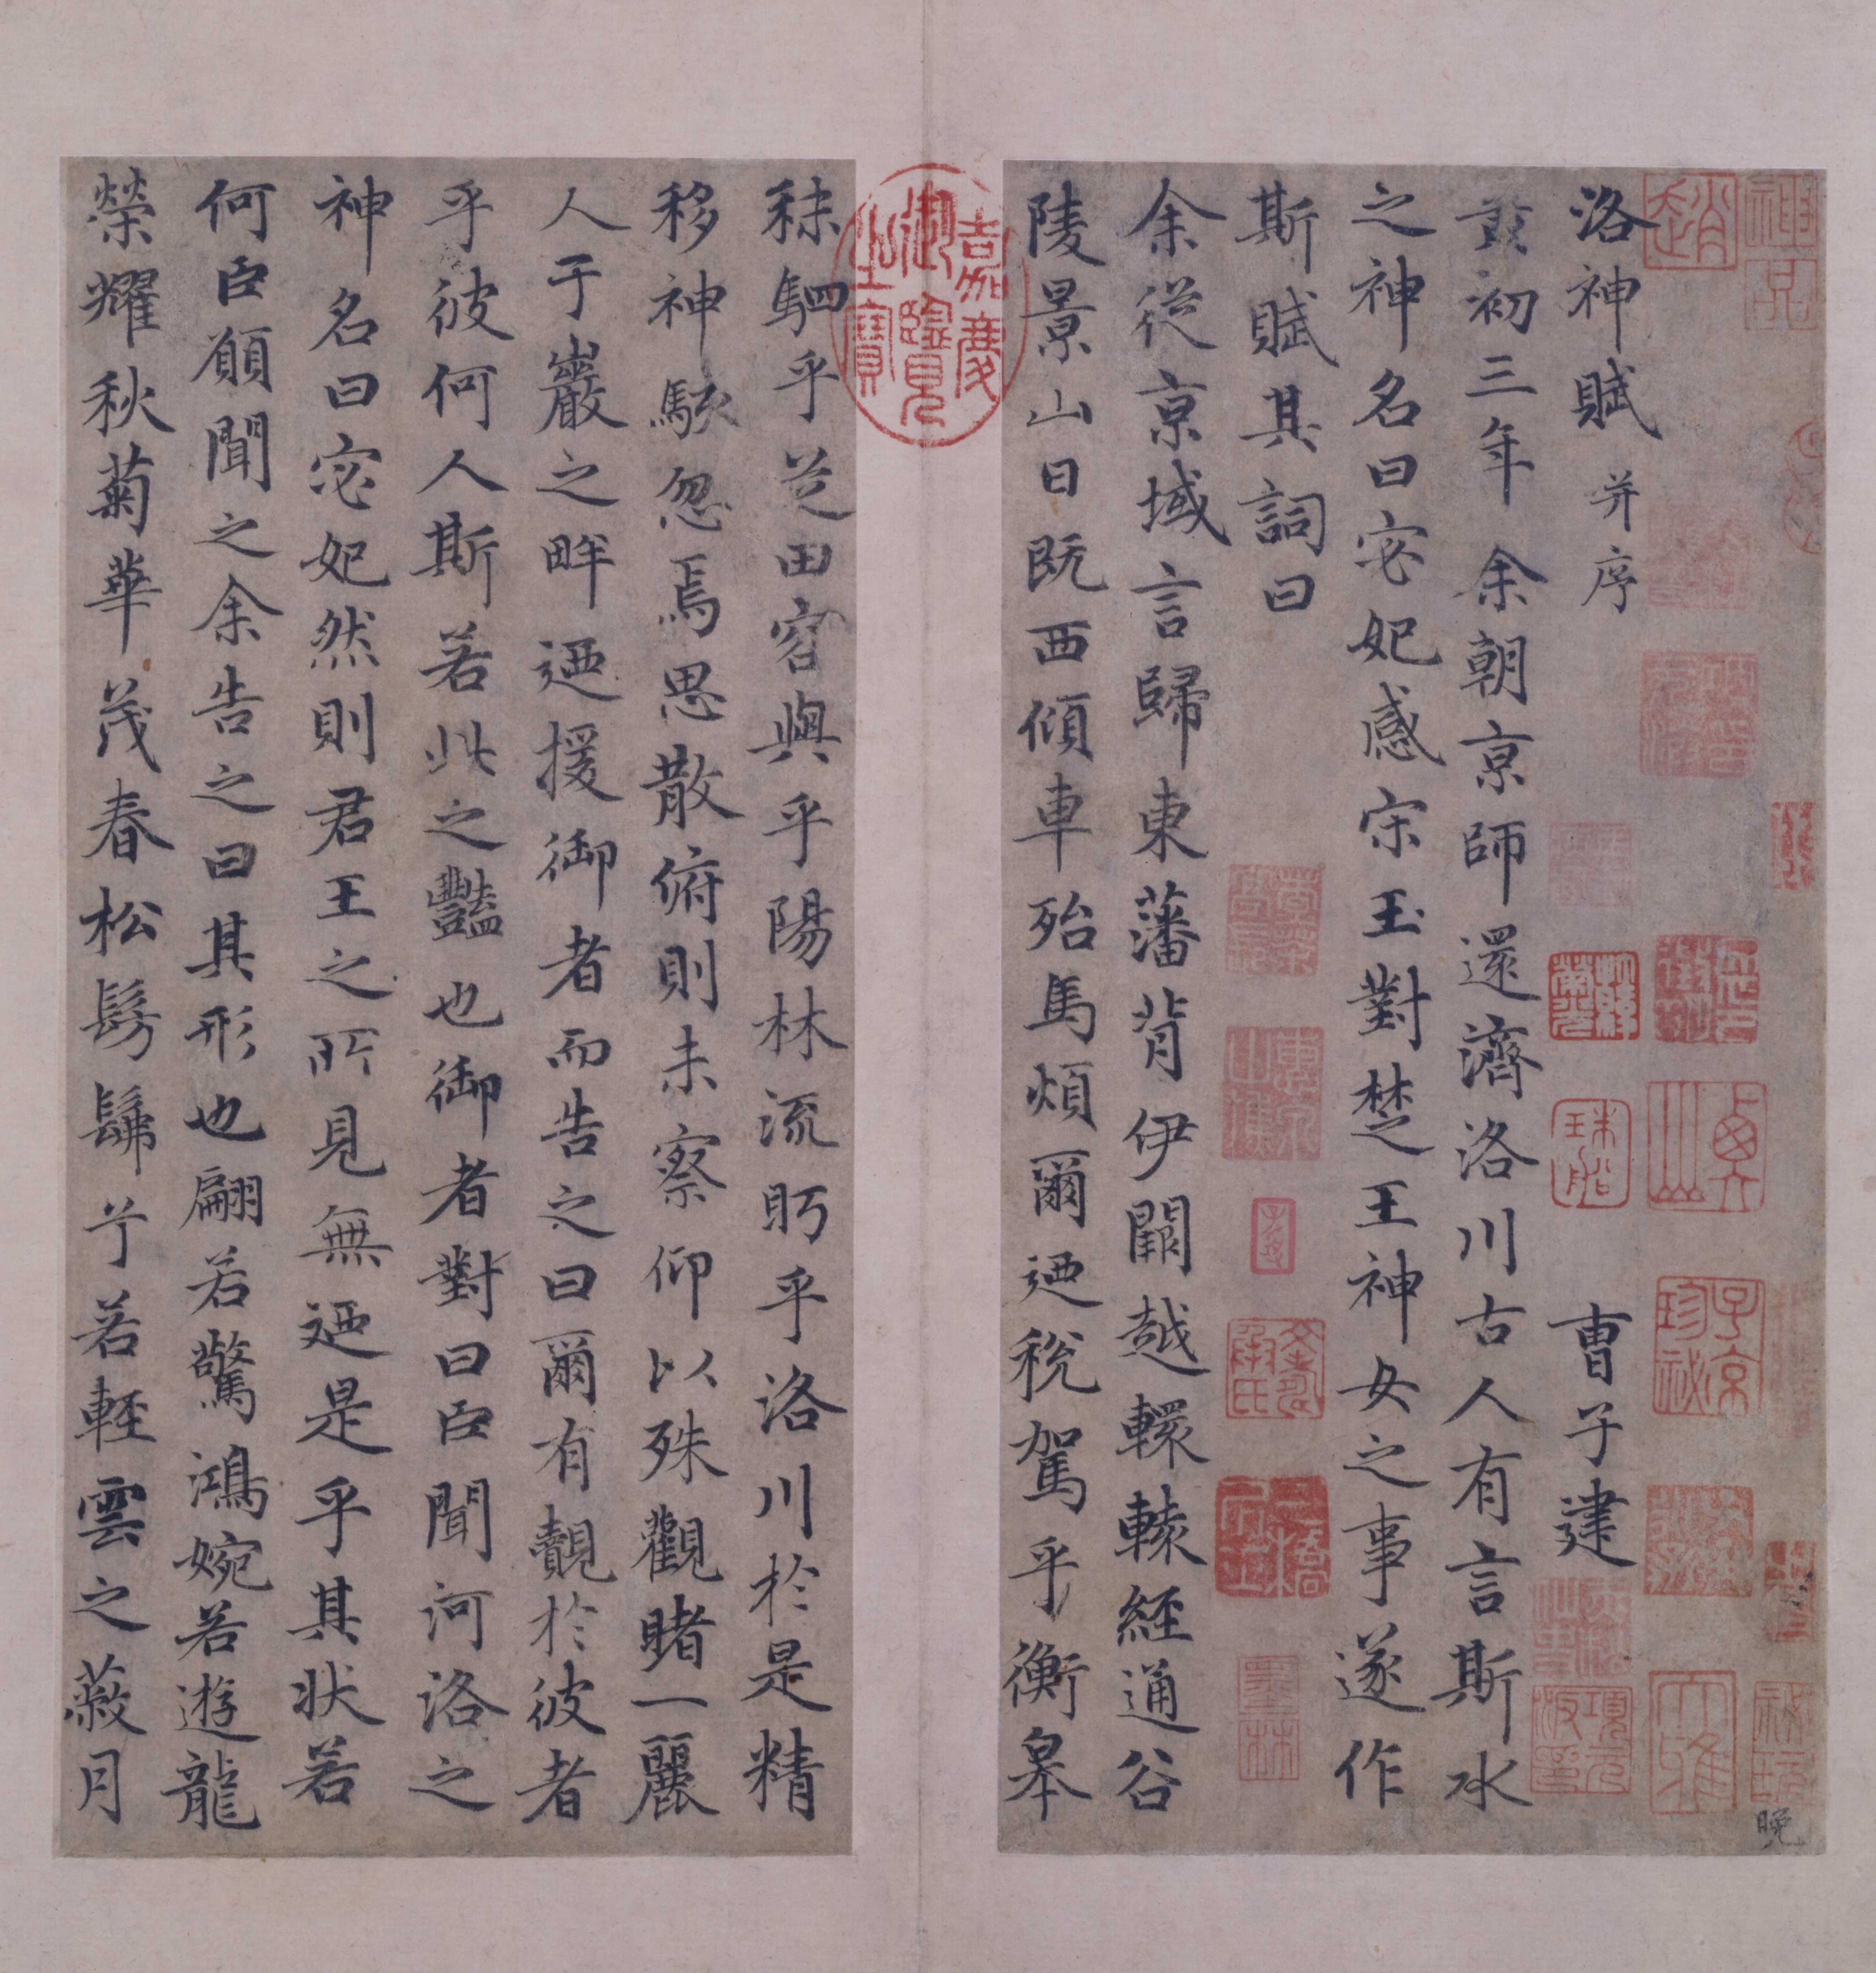 洛神賦 并序 曹子建
黃初三年余朝京師還濟洛川古人有言斯水
之神名曰宓妃感宋玉對楚王神女之事遂作
斯賦其詞曰
余從京域言歸東藩背伊闕越轘轅經通谷
陵景山日既西傾車殆馬煩爾迺稅駕乎衡皋
秣駟乎芝田容與乎陽林流眄乎洛川於是精
移神駭忽焉思散俯則未察仰以殊觀睹一麗
人于巖之畔迺援御者而告之曰爾有覿於彼者
乎彼何人斯若此之豔也御者對曰臣聞河洛之
神名曰宓妃然則君王之所見無迺是乎其狀若
何臣願聞之余告之曰其形也翩若驚鴻婉若遊龍
榮耀秋菊華茂春松髣髴兮若輕雲之蔽月
嘉慶御覽之寶
趙
子京珍祕
墨林
晚